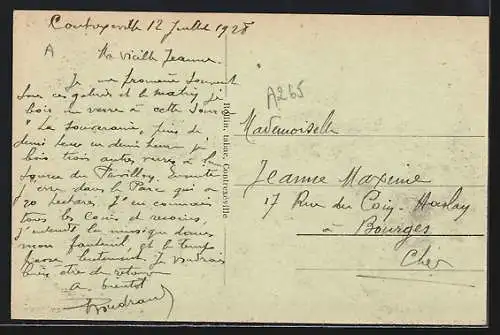 Contrexéville 12 Juillet 1928
A Ma vieille Jeanne.
Je me promène souvent
sous ces galeries et le matin je
bois un verre à cette source
"La Souveraine, puis de
demi heure en demi heure je
bois trois autres verres à la
source du Pavillon. Ensuite
j'erre dans le Parc qui a
20 hectares. J'en connais
tous les coins et recoins,
j'entends la musique dans
mon fauteuil, et le temps
passe lentement. Je voudrais
bien être de retour
A bientôt
tabac, Contrexéville
A265
Mademoiselle
Jeanne Maxime
17 Rue du Coin-Haslay
à Bourges
Cher